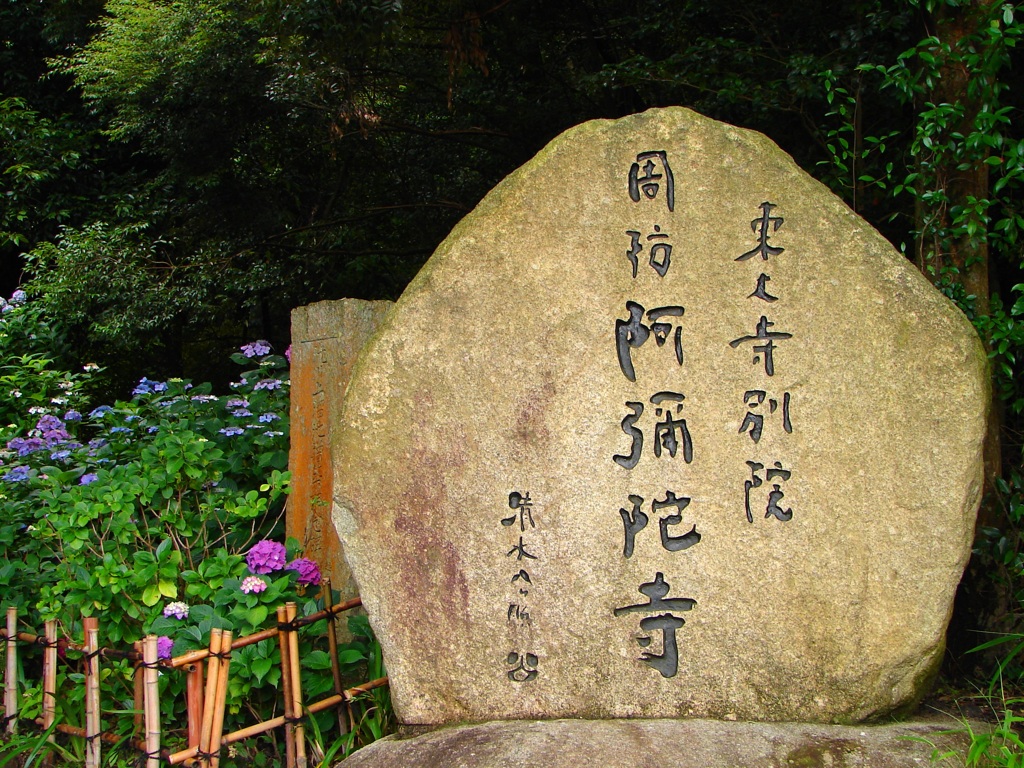 東大寺別院
周防阿彌陀寺
清水公照書